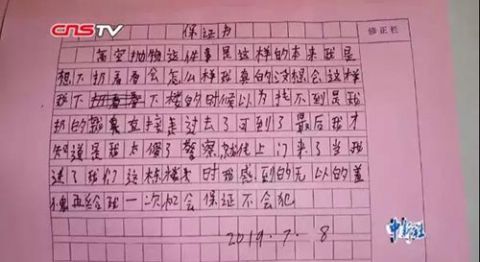 CNSTV
保证书
修正栏
高空抛物这件事是这样的本来我是
想下扔看看会怎么样我真的没想会这样
我下扔看看下楼的时候以为找不到是我
扔的就直接走过去了可到了最后我才
知道是我太傻了警察就找上门来了当我
进了我们这栋楼时我感到的无以的羞
愧再给我一次机会保证不会犯
2019.7.8
中新社